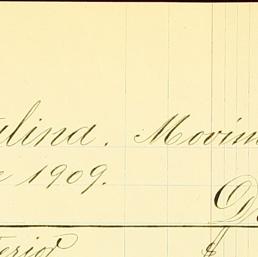 ulina. Movim
e 1909.
D
terior